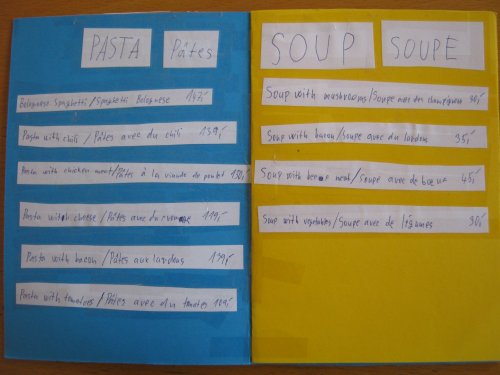 PASTA Pâtes
Bolognese Spaghetti / Spaghetti Bolognese 147,-
Pasta with chili / Pâtes avec du chili 139,-
Pasta with chicken meat / Pâtes à la viande de poulet 130,-
Pasta with cheese / Pâtes avec du 119,-
Pasta with bacon / Pâtes aux lardons 139,-
Pasta with tomatoes / Pâtes avec du tomates 109,-
SOUP SOUPE
Soup with mushrooms / Soupe des champignons 30,-
Soup with bacon / Soupe avec du lardons 35,-
Soup with meat / Soupe avec de boeuf 45,-
Soup with vegetables / Soupe avec de légumes 30,-